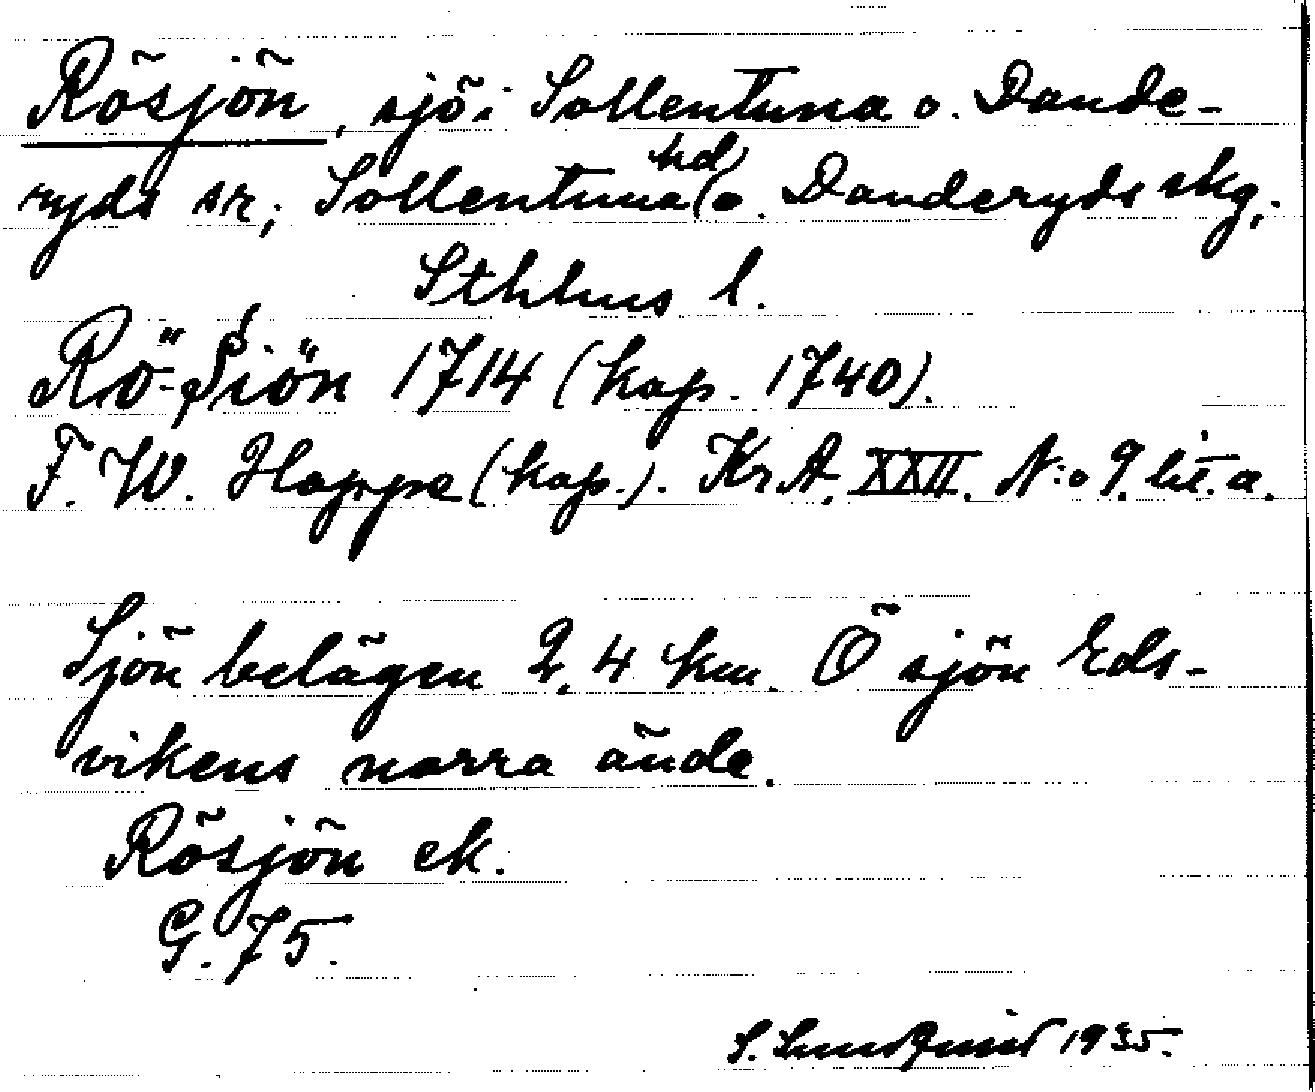 Rösjön, sjö i Sollentuna o. Dande-
ryds sn; Sollentuna hd o. Danderyds skg,
Sthlms l.
Rö-Siön 1714 (kop. 1740).
F. W. Hoppe (kop.). Kr.A. XXII. N:o 9. lit. a.
Sjön belägen 2,4 km. Ö sjön Eds-
vikens norra ände.
Rösjön ek.
G. 75.
S. Sundqvist 1935.